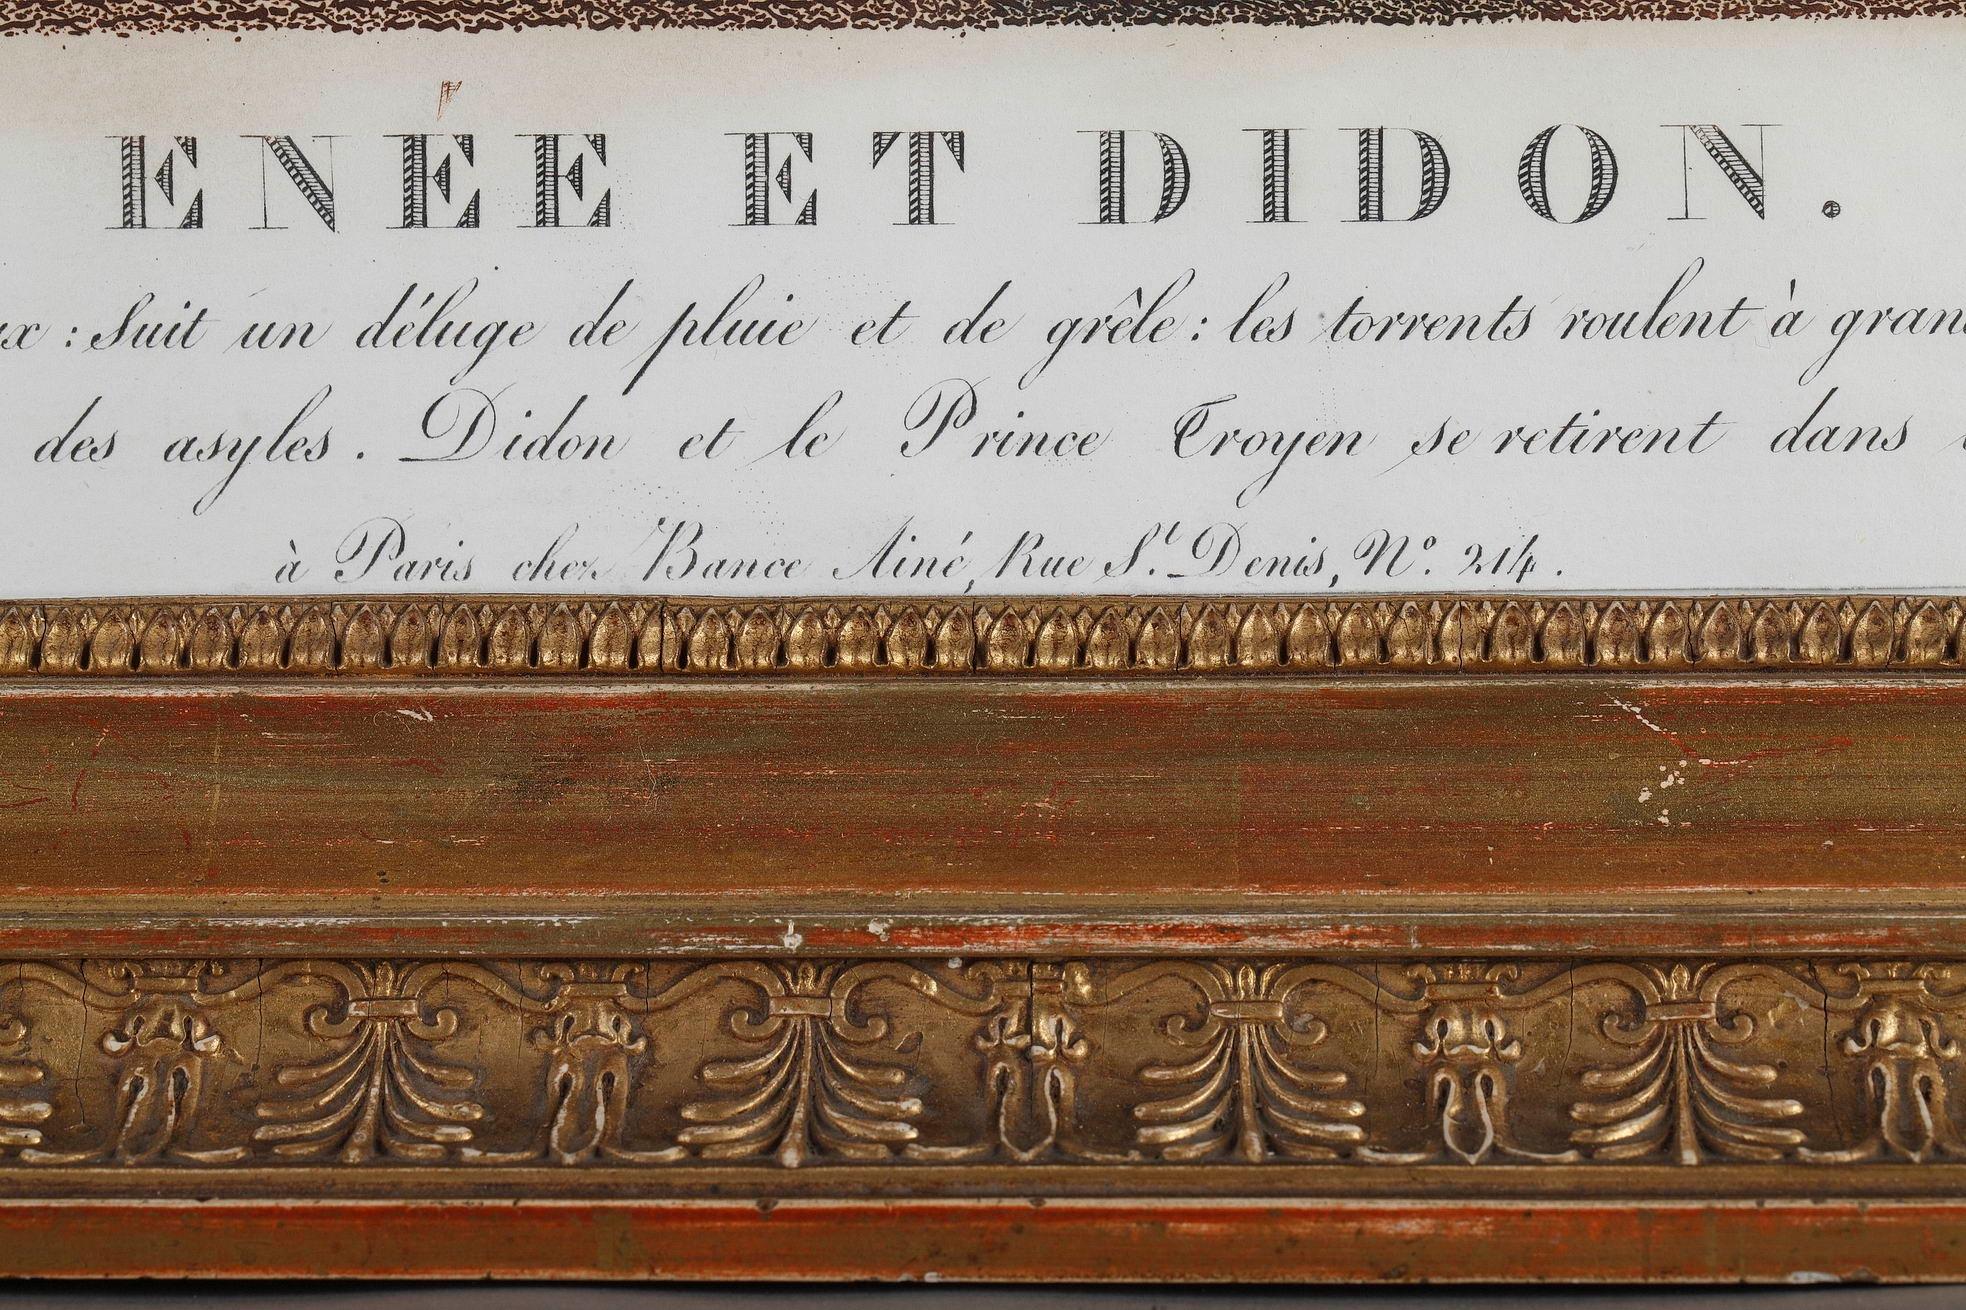 ENÉE ET DIDON.
: Suit un déluge de pluie et de grêle : les torrents roulent à
des asyles. Didon et le Prince Troyen se retirent dans
à Paris chez Bance Ainé, Rue St. Denis, No. 214.